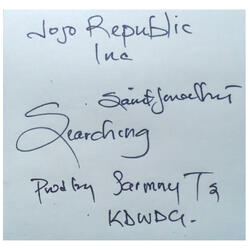 Jojo Republic
Inc
Saint Jonathan
Searching
Prod by Sarmny T &
KDWDG.